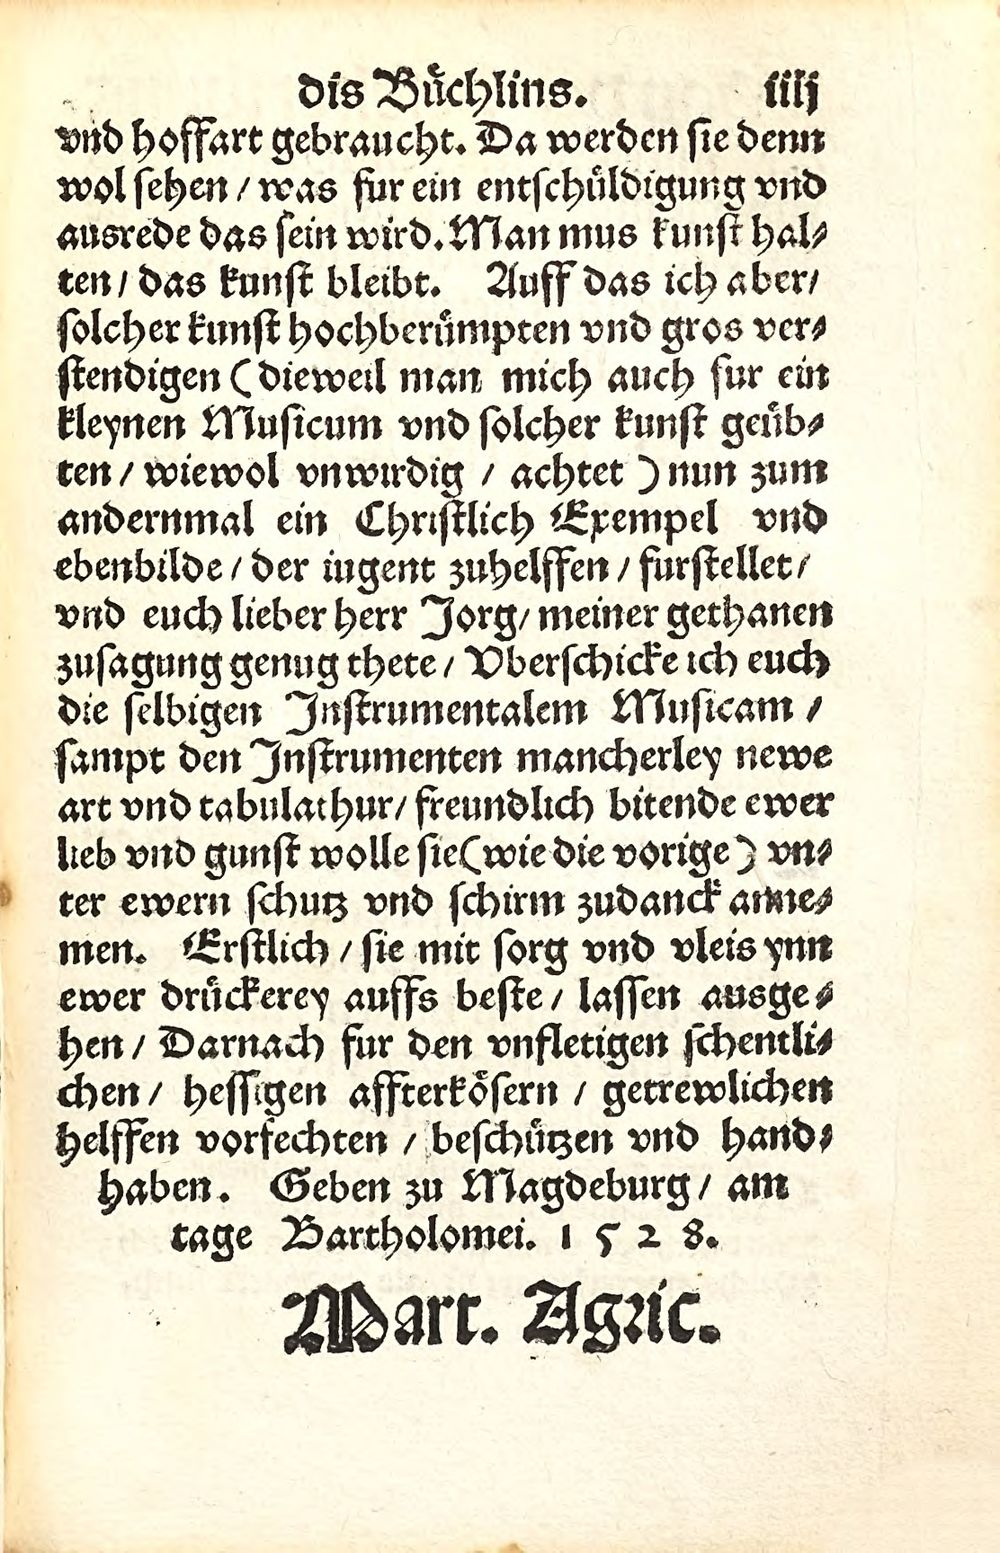 dis Bůchlins. iiij
vnd hoffart gebraucht. Da werden sie denn
wol sehen / was fur ein entschůldigung vnd
ausrede das sein wird. Man mus kunst hal⸗
ten / das kunst bleibt. Auff das ich aber /
solcher kunst hochberůmpten vnd gros ver⸗
stendigen ( dieweil man mich auch fur ein
kleynen Musicum vnd solcher kunst geůb⸗
ten / wiewol vnwirdig / achtet ) nun zum
andernmal ein Christlich Exempel vnd
ebenbilde / der iugent zuhelffen / furstellet /
vnd euch lieber herr Jorg / meiner gethanen
zusagung genug thete / Vberschicke ich euch
die selbigen Instrumentalem Musicam /
sampt den Instrumenten mancherley newe
art vnd tabulathur / freundlich bitende ewer
lieb vnd gunst wolle sie ( wie die vorige ) vn⸗
ter ewern schutz vnd schirm zudanck anne⸗
men. Erstlich / sie mit sorg vnd vleis ynn
ewer drůckerey auffs beste / lassen ausge⸗
hen / Darnach fur den vnfletigen schentli⸗
chen / hessigen affterkôsern / getrewlichen
helffen vorfechten / beschůtzen vnd hand⸗
haben. Geben zu Magdeburg / am
tage Bartholomei. 1 5 2 8.
Mart. Agric.